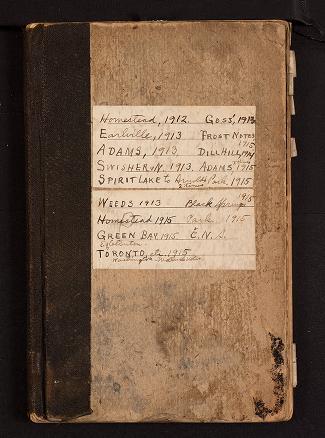 Homestead, 1912 Goss, 1913
Earlville, 1913 Frost Notes 1915
Adams, 1913 Dill Hill, 1914
Swisher N. 1913 Adams 1915
Spirit Lake & Arnolds Park 1915
2 times
Weeds 1913 Black 1915
Homestead 1915 1915
Green Bay 1915 E.N.
Toronto, etc. 1915
Washington